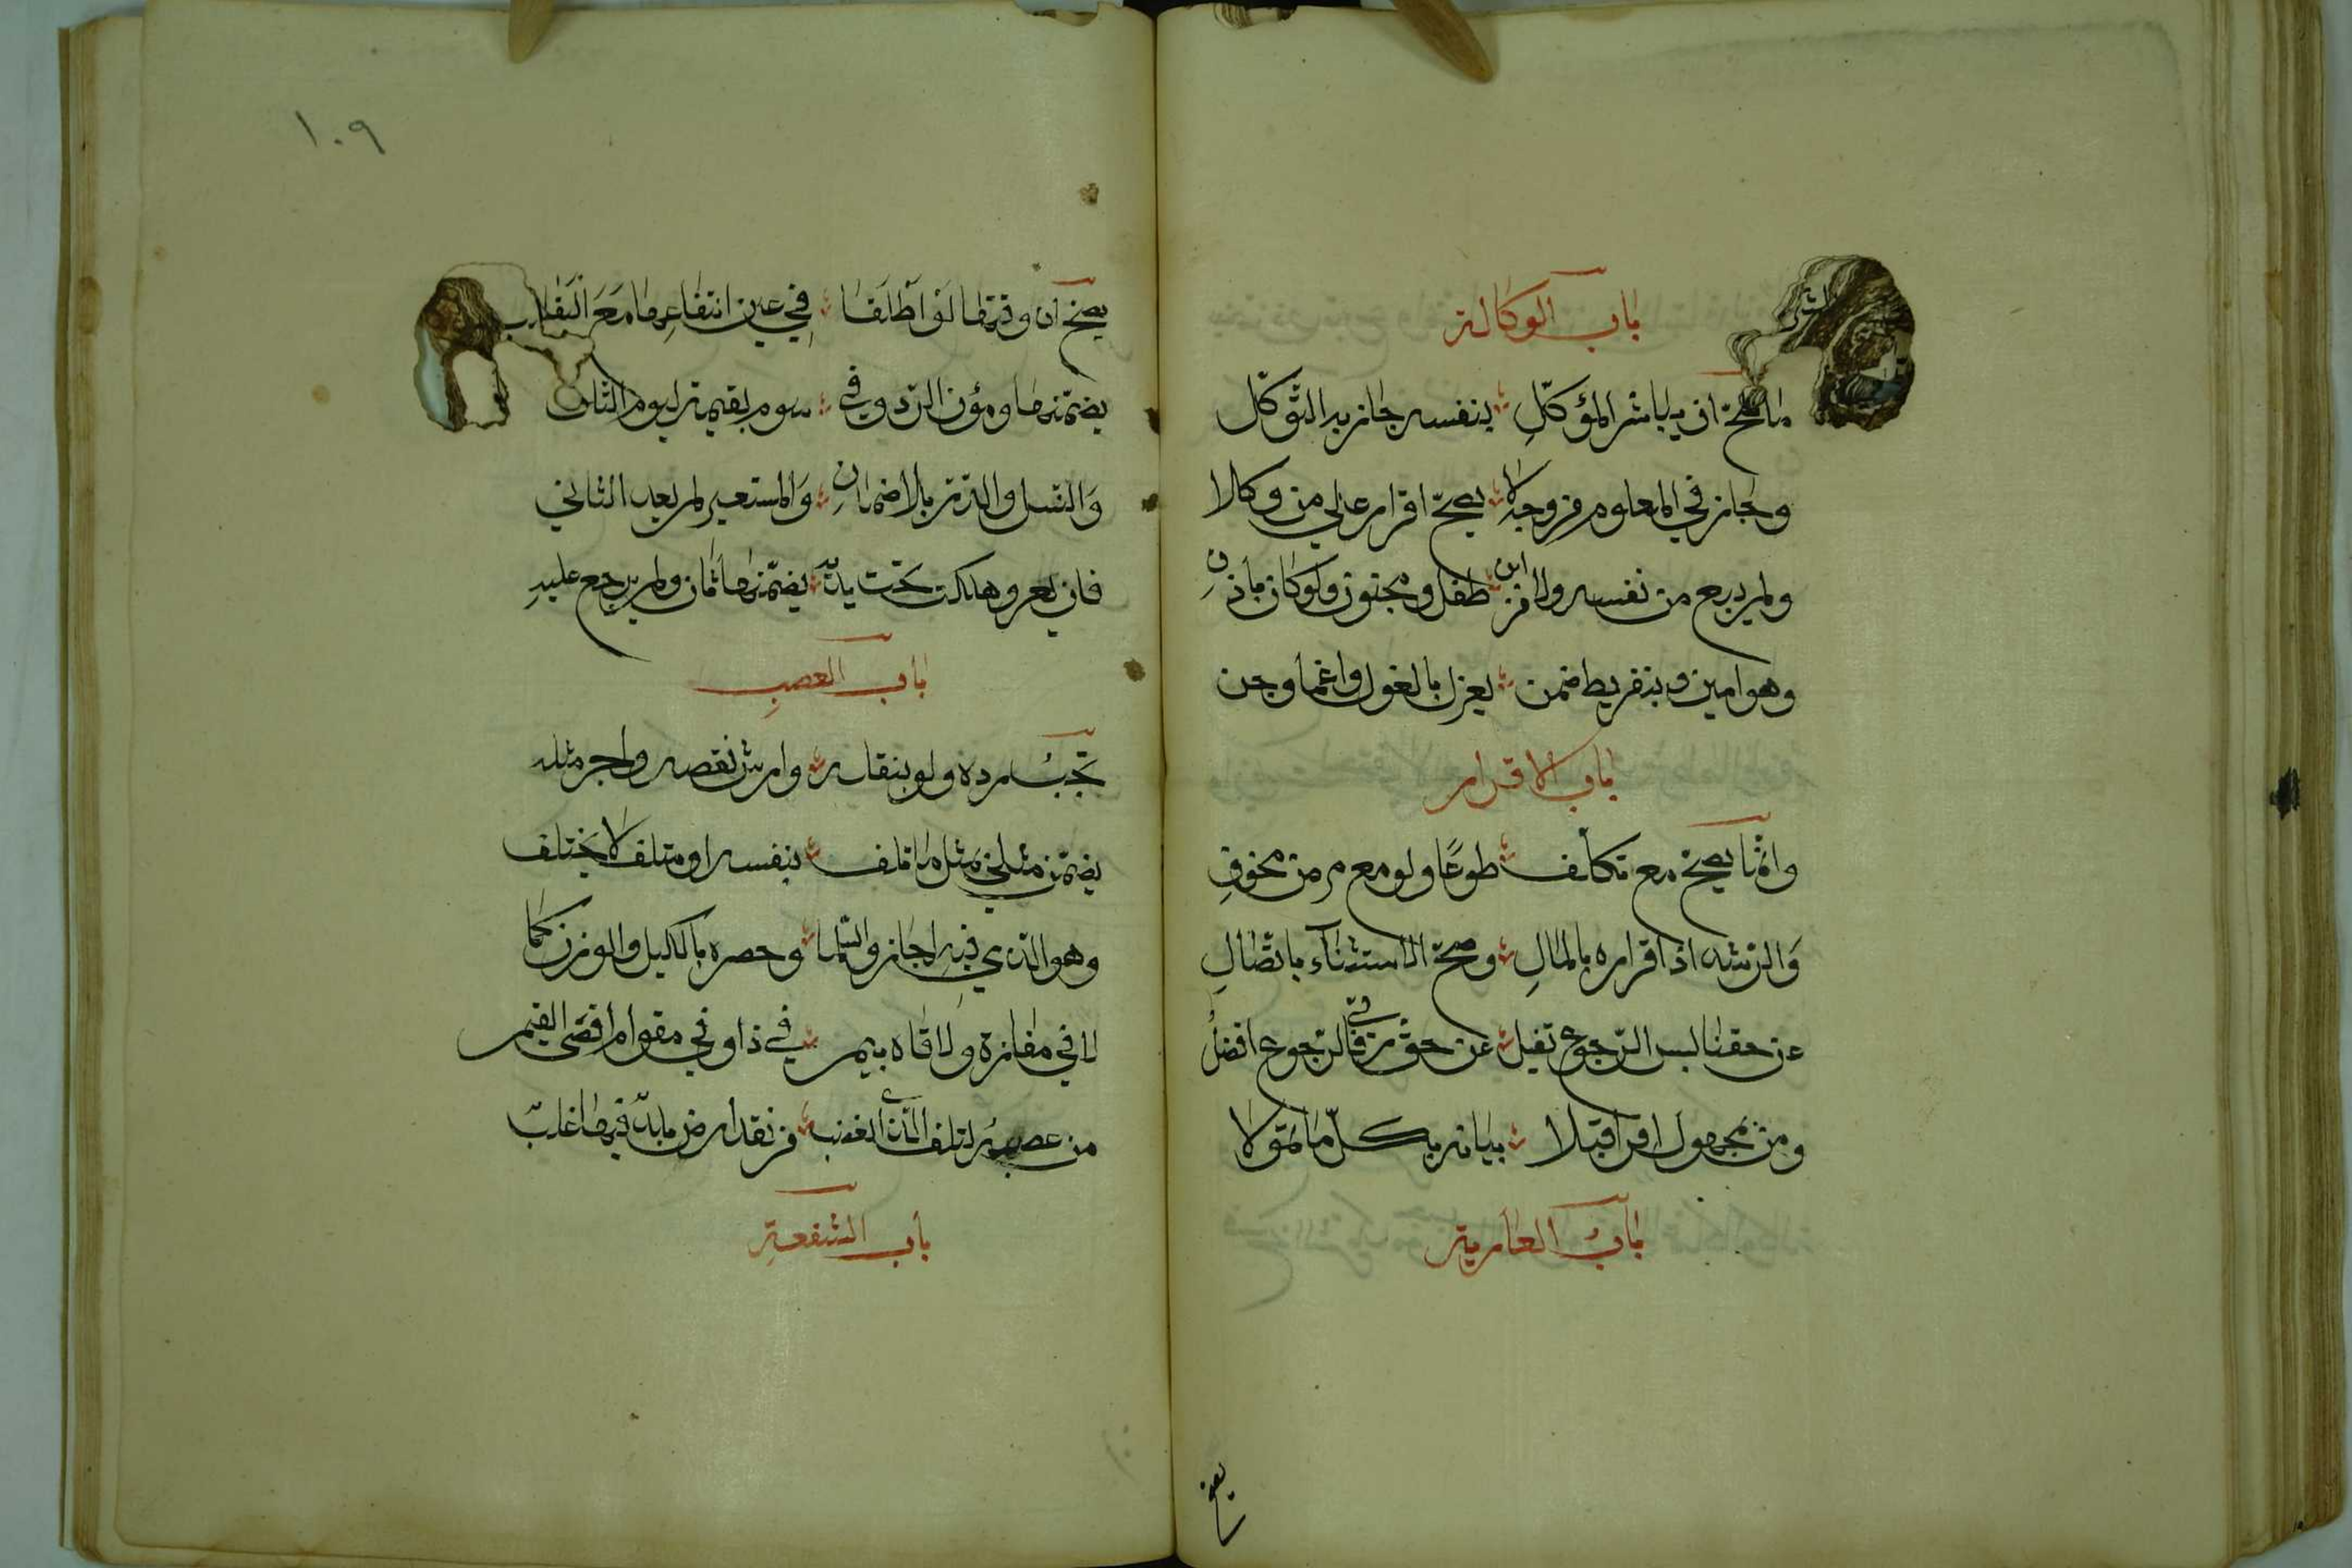 باب الوكالة
ما صح ان يباشر الموكّل ؛ بنفسه جاز به التوكّل
وجاز في المعلوم من وجه لا ؛ يصح اقرار على من وكلا
ولم يبع من نفسه ولا من ؛ ابن طفل ومجنون ولو كان باذن
وهو امين وبتفريط ضمن ؛ يعزل بالعزل واغما وجن
باب الاقرار
وانما يصح مع تكلف ؛ طوعًا ولو مع مرض مخوف
والرشد اذ اقراره بالمال ؛ وصح الاستثناء باتصال
عن حقنا ليس الرجوع تقبل ؛ عن حق ربي فالرجوع افضل
ومن بمجهول اقر اقبلا ؛ بيانه بكل ما تمولا
باب العارية
يصح
١٠٩
يصح ان وقتها لو اطلقا ؛ في عين انتفاعها مع البقا
يضمنها ومؤن الرد وفي ؛ سوم بقيمة ليوم التلف
والنسل والدر بلا ضمان ؛ والمستعير لم يعد الثاني
فان يعر وهلكت تحت يده ؛ يضمنها ثان ولم يرجع عليه
باب الغصب
تجب رده ولو بنقله ؛ وارش نقصه واجر مثله
يضمن مثلي مثل ما تلف ؛ بنفسه او متلف لا يختلف
وهو الذي فيه اجازوا السلما ؛ وحصره بالكيل والوزن كما
لا في مفازة ولاقاه بيم ؛ في ذا وفي مقوم اقصى القيم
من غصبه لتلف الذي انغصب ؛ من نقد ارض ما بد فيها غلب
باب الشفعة